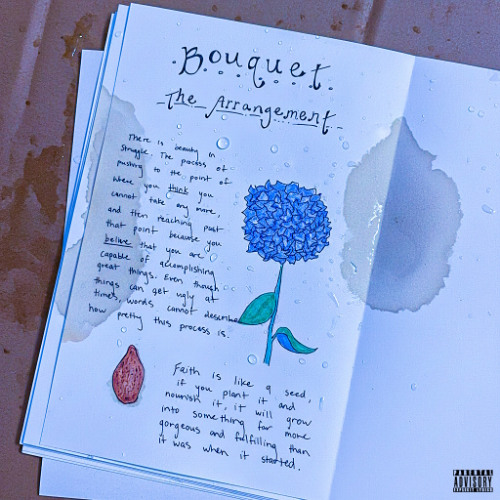 Bouquet
The Arrangement
There is beauty in
Struggle. The process of
pushing to the point of
where you think you
cannot take any more,
and then reaching past
that point because you
believe that you are
capable of accomplishing
great things. Even though
things can get ugly at
times, words cannot describe
how pretty this process is.
Faith is like a seed,
if you plant it and
nourish it, it will grow
into something far more
gorgeous and fulfilling than
it was when it started.
PARENTAL
ADVISORY
EXPLICIT LYRICS